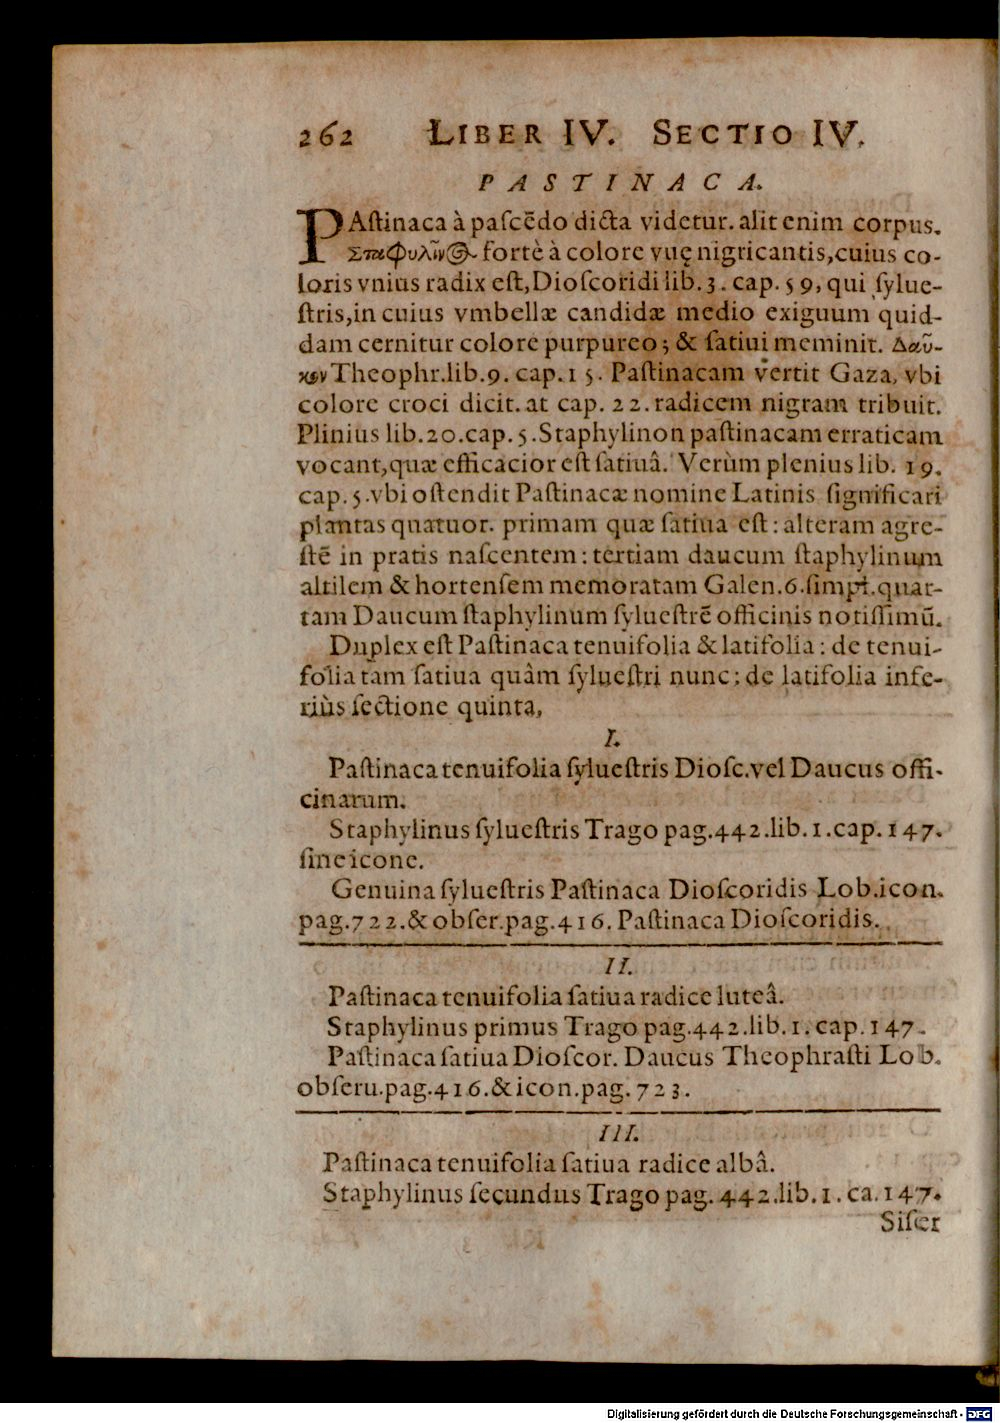 262 LIBER IV. SECTIO IV.
PASTINACA.
PAſtinaca à paſcēdo dicta videtur. alit enim corpus.
Σταφυλῖνος fortè à colore vuę nigricantis, cuius co-
loris vnius radix eſt, Dioſcoridi lib. 3. cap. 59, qui ſylue-
ſtris, in cuius vmbellæ candidæ medio exiguum quid-
dam cernitur colore purpureo; & ſatiui meminit. Δαῦ-
κον Theophr. lib. 9. cap. 15. Paſtinacam vertit Gaza, vbi
colore croci dicit. at cap. 22. radicem nigram tribuit.
Plinius lib. 20. cap. 5. Staphylinon paſtinacam erraticam
vocant, quæ efficacior eſt ſatiuâ. Verùm plenius lib. 19.
cap. 5. vbi oſtendit Paſtinacæ nomine Latinis ſignificari
plantas quatuor. primam quæ ſatiua eſt: alteram agre-
ſtē in pratis naſcentem: tertiam daucum ſtaphylinum
altilem & hortenſem memoratam Galen. 6. ſimpl. quar-
tam Daucum ſtaphylinum ſylueſtrē officinis notiſſimū.
Duplex eſt Paſtinaca tenuifolia & latifolia: de tenui-
folia tam ſatiua quâm ſylueſtri nunc; de latifolia infe-
riùs ſectione quinta,
I.
Paſtinaca tenuifolia ſylueſtris Dioſc. vel Daucus offi-
cinarum.
Staphylinus ſylueſtris Trago pag. 442. lib. 1. cap. 147.
ſine icone.
Genuina ſylueſtris Paſtinaca Dioſcoridis Lob. icon.
pag. 722. & obſer. pag. 416. Paſtinaca Dioſcoridis.
II.
Paſtinaca tenuifolia ſatiua radice luteâ.
Staphylinus primus Trago pag. 442. lib. 1. cap. 147.
Paſtinaca ſatiua Dioſcor. Daucus Theophraſti Lob.
obſeru. pag. 416. & icon. pag. 723.
III.
Paſtinaca tenuifolia ſatiua radice albâ.
Staphylinus ſecundus Trago pag. 442. lib. 1. ca. 147.
Siſer
Digitalisierung gefördert durch die Deutsche Forschungsgemeinschaft - DFG